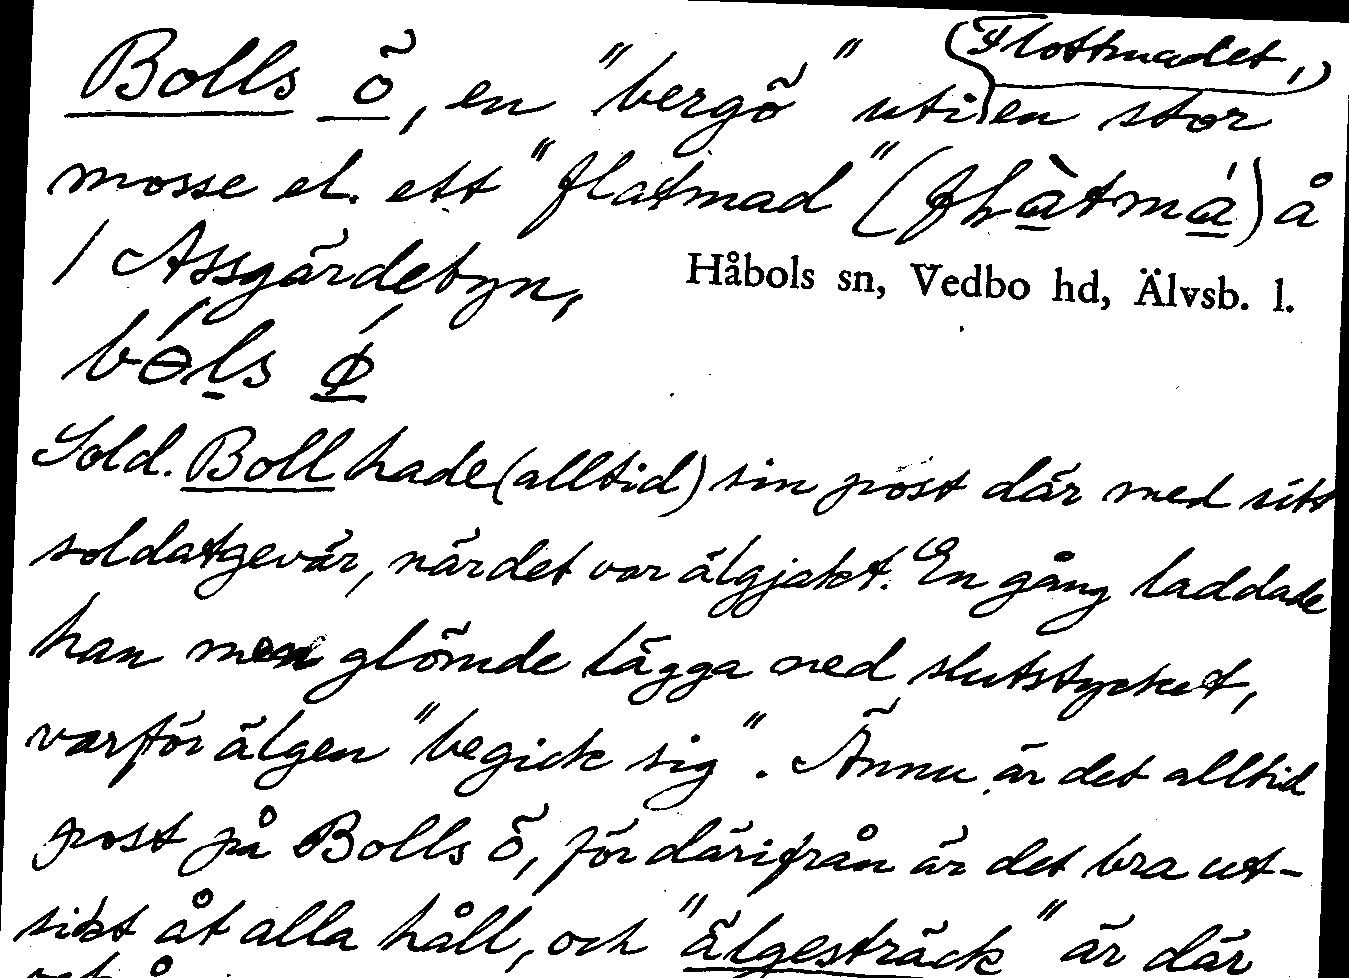 Bolls ö, en "bergö" uti (Flottmadet,) en stor
mosse el. ett "flatmad" (flàtmá) å
/ Assgärdebyn,
Håbols sn, Vedbo hd, Älvsb. l.
bóls ǿ
Sold. Boll hade (alltid) sin post där med sitt
soldatgevär, när det var älgjakt. En gång laddade
han men glömde lägga ned slutstycket,
varför älgen "begick sig". Ännu är det alltid
post på Bolls ö, för därifrån är det bra ut-
sikt åt alla håll, och "älgesträck" är där